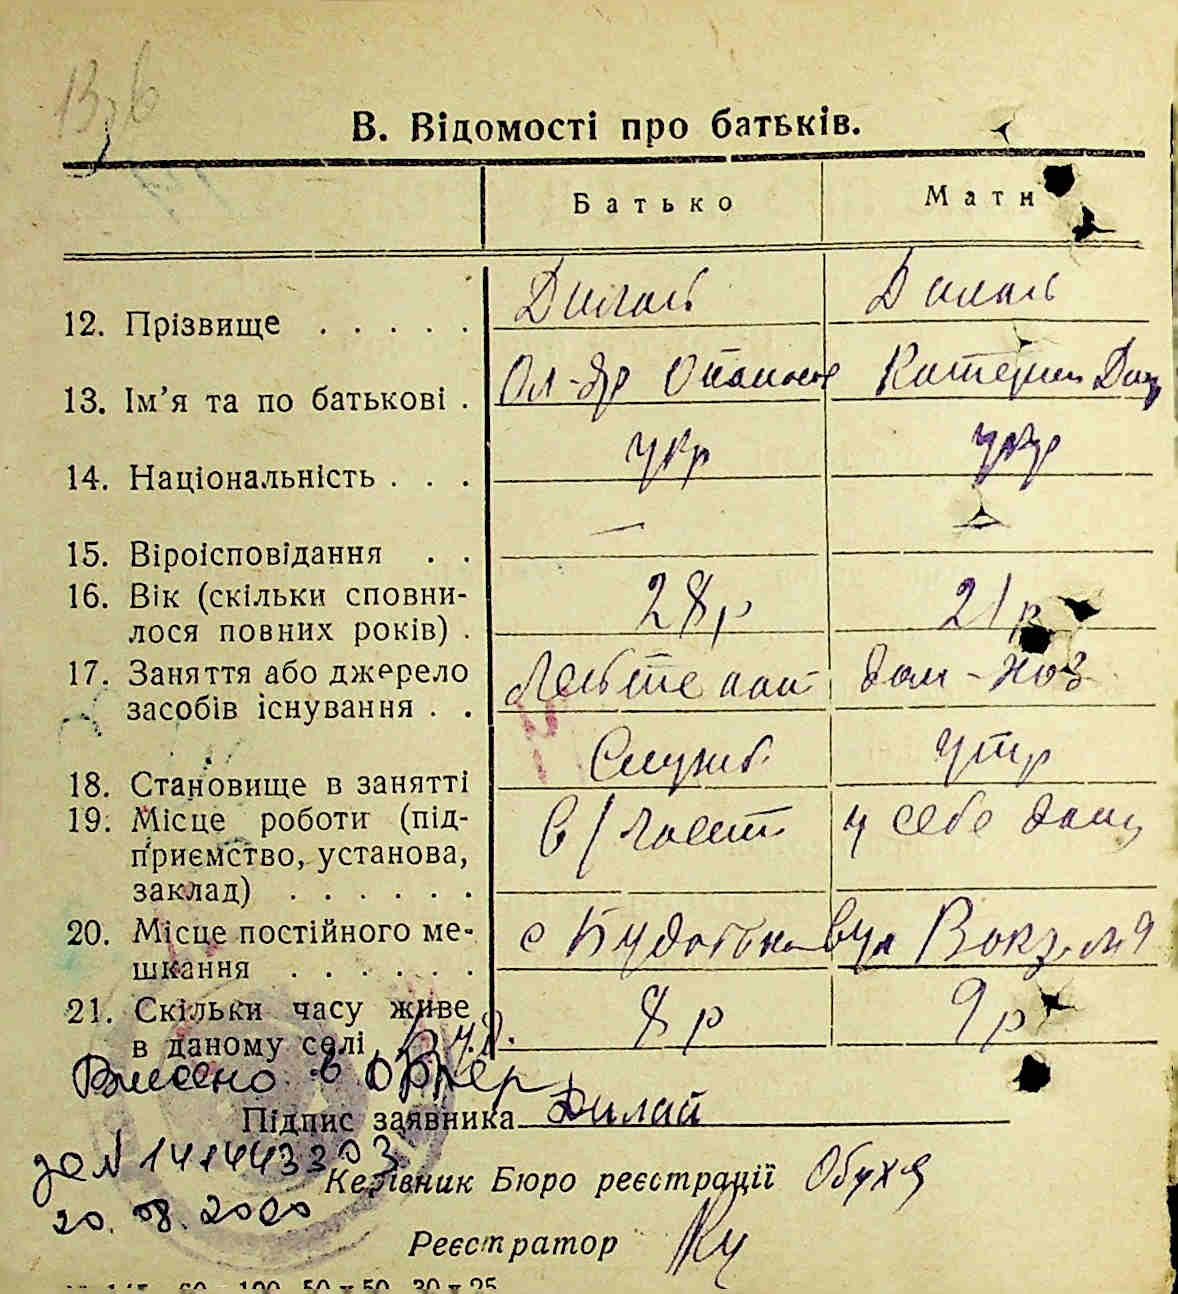 В. Відомості про батьків.
Батько Мати
12. Прізвище . . . . . Дилай Дилай
13. Ім'я та по батькові . Ол-др Опанас Катерин Дан
14. Національність . . . укр укр
15. Віроісповідання . . —
16. Вік (скільки сповни-
лося повних років) . 28 р 21 р
17. Заняття або джерело
засобів існування . . Лейтенант дом-хоз
18. Становище в занятті Служб. утр
19. Місце роботи (під-
приємство, установа,
заклад) . . . . . . в/част у себе дома
20. Місце постійного ме-
шкання . . . . . . с вул Вокзальн
21. Скільки часу живе
в даному селі 8 р 9 р
Внесено в
Підпис заявника Дилай
за N 141443303
Керівник Бюро реєстрації
20.08.2020
Реєстратор